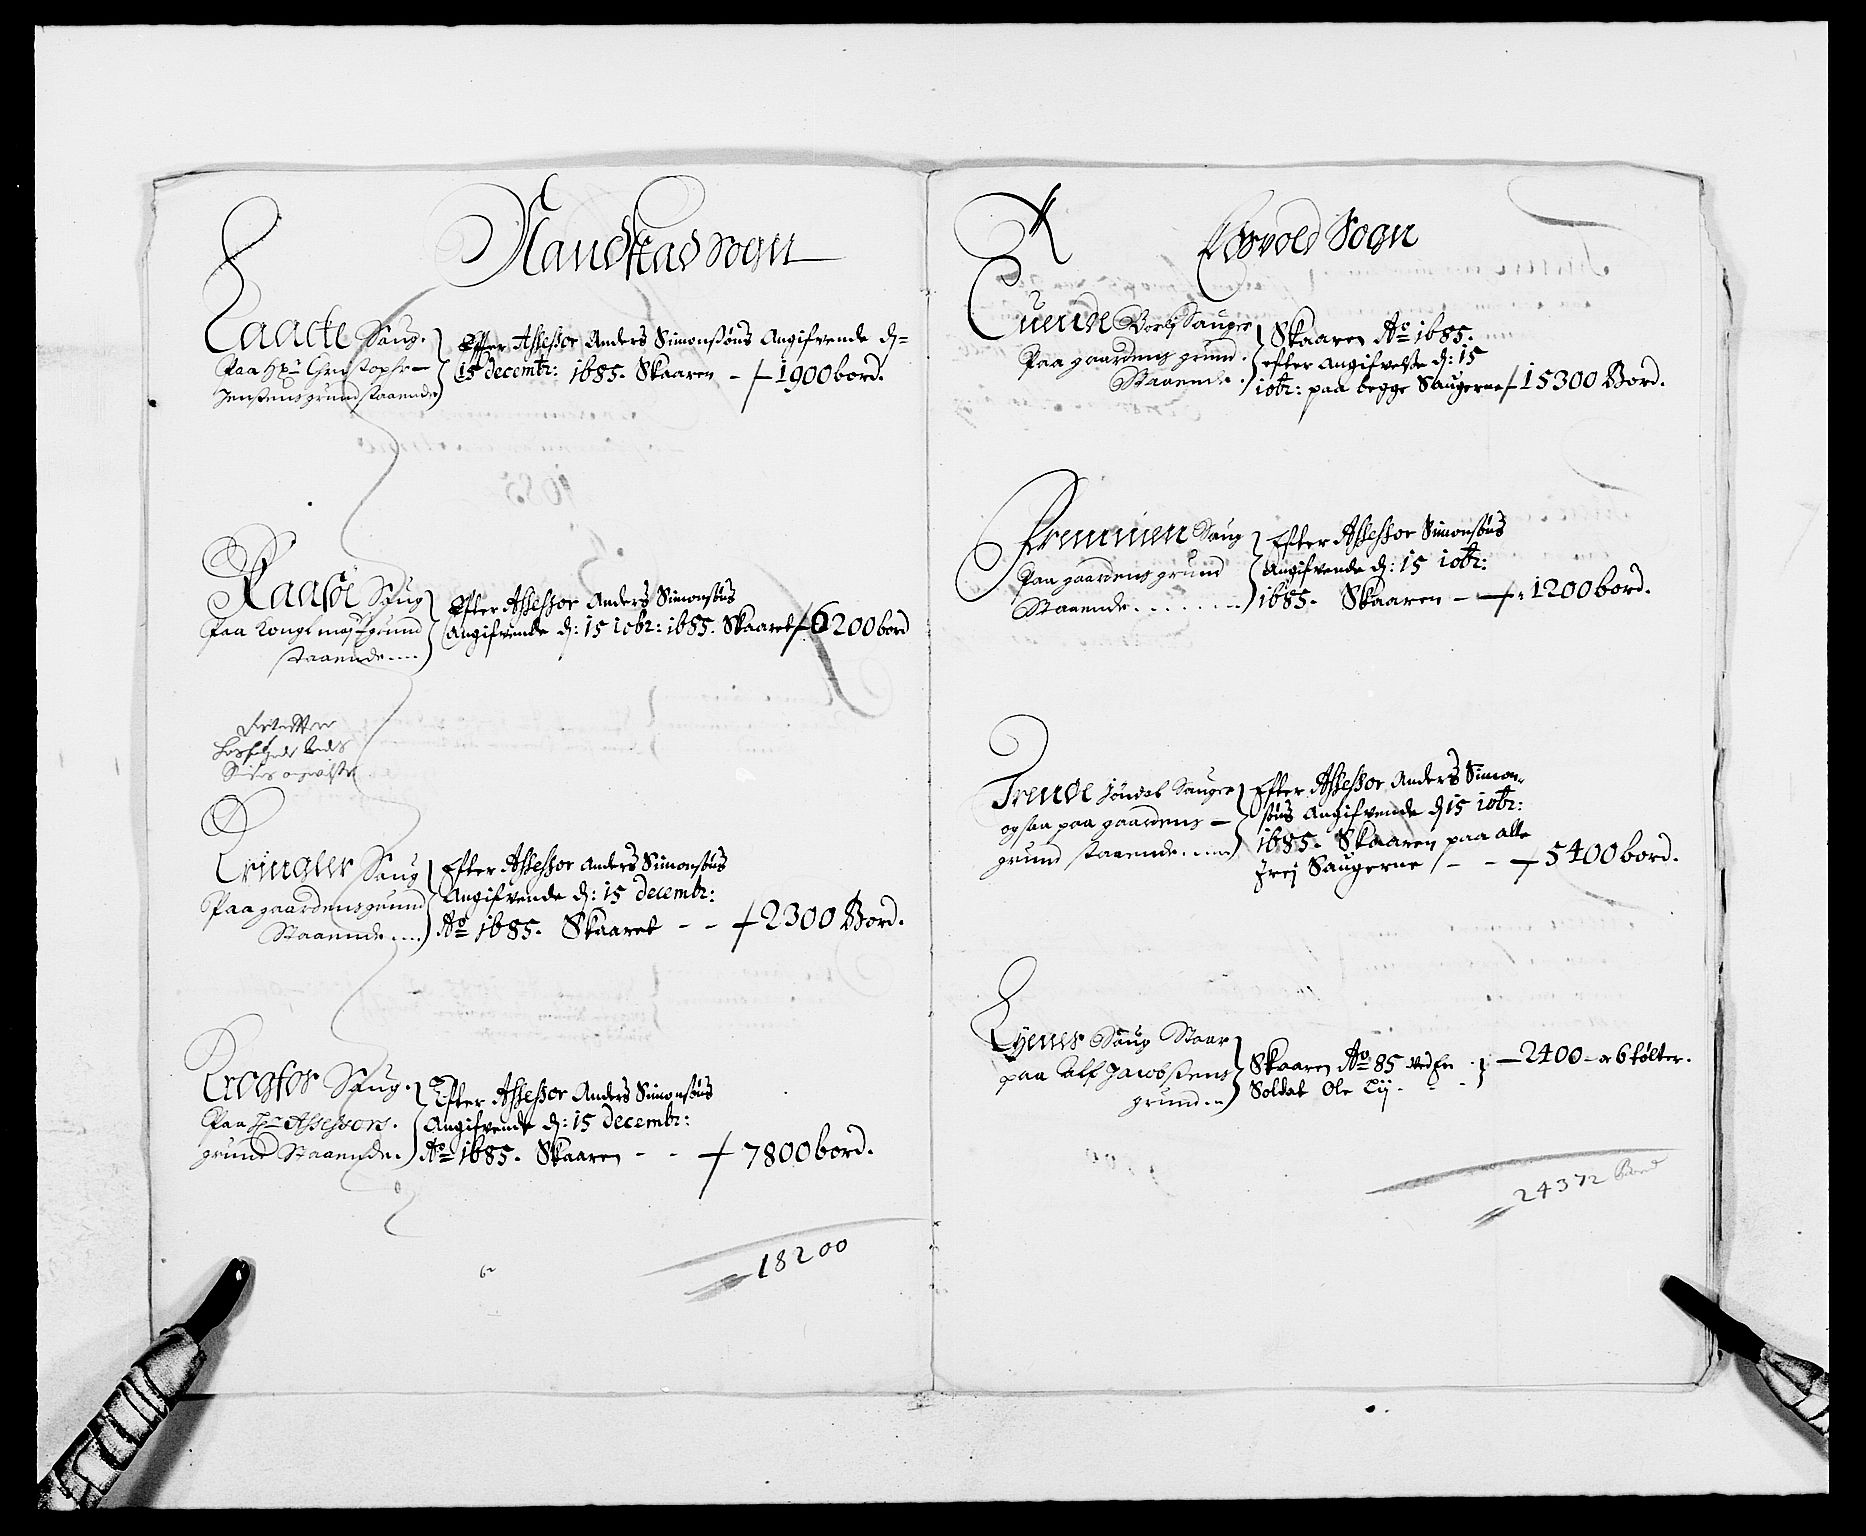 Nandstad Sogn
Laacke Saug.
Paa Hr: Christopher
Jensens grund staaende
Efter Assessor Anders Simonsøns Angifvende d-
15 decembr: 1685. Skaaren - 1900 bord.
Raaholt Saug
Paa Kongl may: grund
staaende
Efter Assessor Anders Simonsøns
Angifvende d: 15 10br: 1685. Skaaret 6200 bord
Kringler Saug
Paa gaardens grund
Staaende
Efter Assessor Anders Simonsøns
Angifvende d: 15 decembr:
Ao 1685. Skaaret - - 2300 Bord.
Krogfos Saug.
Paa Hr Assessors.
grund Staaende.
Efter Assessor Anders Simonsøns
Angifvende d: 15 decembr:
Ao 1685. Skaaren - - 7800 bord.
18200
Edsvold Sogn
Tuende Sauger
Paa gaardens grund.
Staaende.
Skaaren Ao 1685.
efter angifvelse d: 15
10br: paa begge Saugerne 15300 Bord.
Saug
Paa gaardens grund
Staaende
Efter Assessor Simonsøns
Angifvende d: 15 10br:
1685. Skaaren - 1200 bord.
Trende Jøndal Sauger
ogsaa paa gaardens
grund staaende
Efter Assessor Anders Simon-
søns Angifvende d 15 10br:
1685. Skaaren paa alle
trej Saugerne - - 5400 bord.
Saug Staar
paa Alf Jacobsens
grund
Skaaren Ao 85 ved en
Soldat Ole - -
2400 - 6 tølter.
24372 Bord